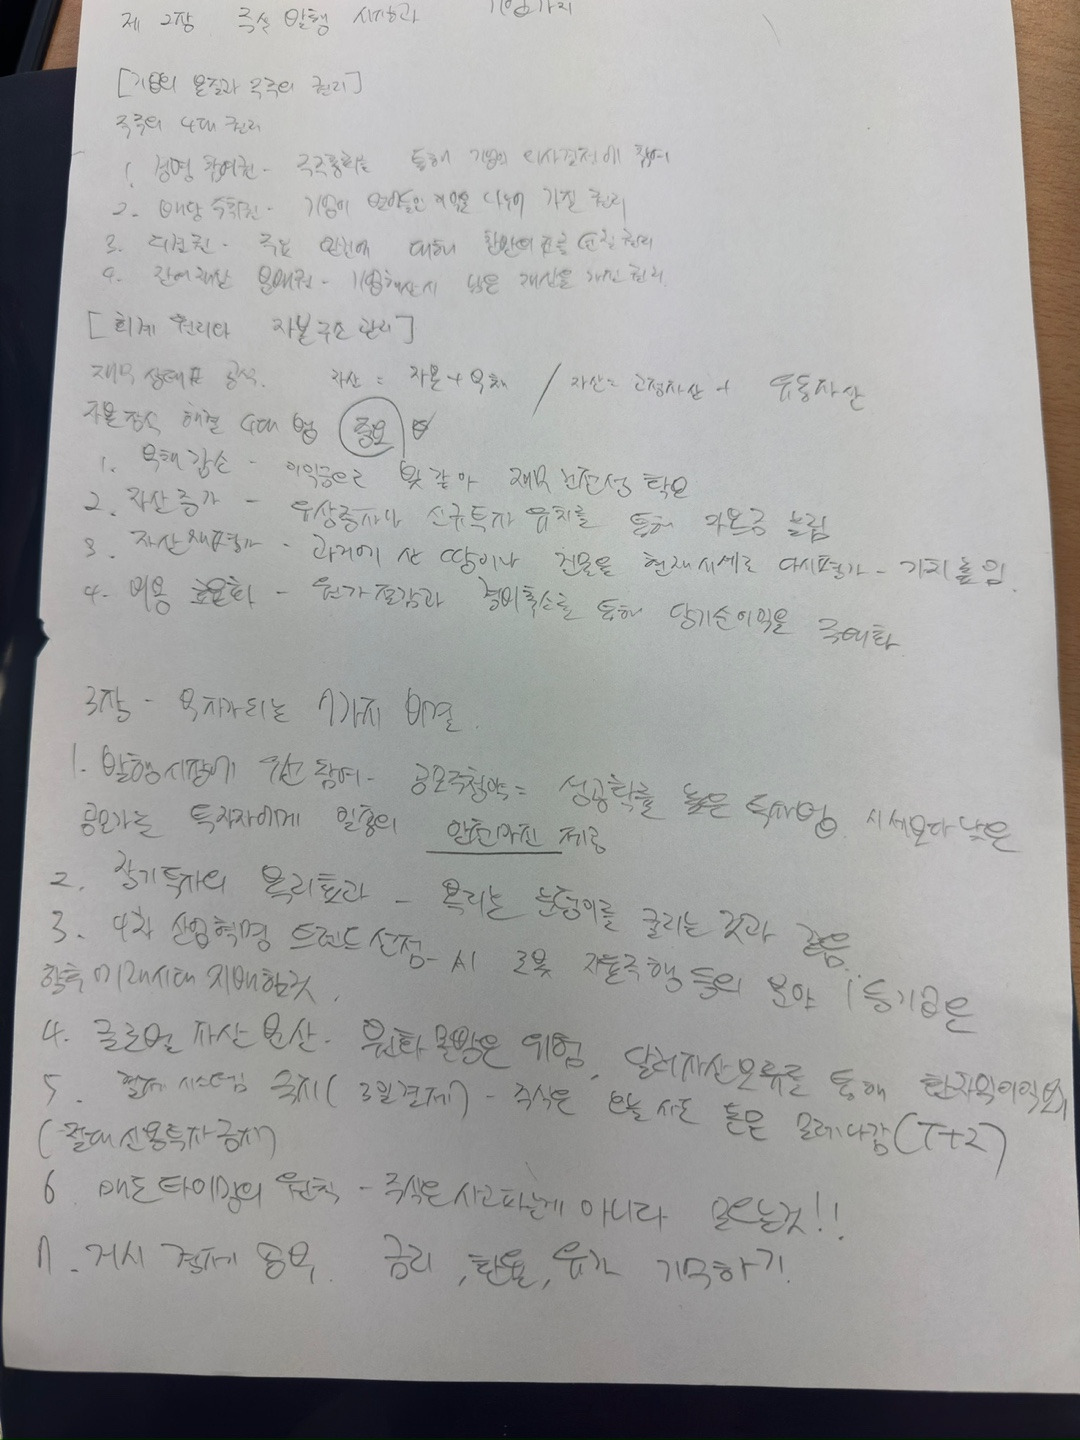 제 2장 주식 발행 시장과 기업가치
[기업의 본질과 주주의 권리]
주주의 4대 권리
1. 경영 참여권 - 주주총회를 통해 기업의 의사결정에 참여
2. 배당 수취권 - 기업이 벌어들인 이익을 나누어 가질 권리
3. 의결권 - 주요 안건에 대해 찬반의 표를 던질 권리
4. 잔여재산 분배권 - 기업해산시 남은 재산을 가질 권리
[회계 원리와 자본구조 관리]
재무 상태표 공식. 자산 = 자본 + 부채 / 자산 = 고정자산 + 유동자산
자본잠식 해결 4대 방법 중요
1. 부채감소 - 이익금으로 빚갚아 재무 건전성 확보
2. 자산증가 - 유상증자나 신규투자 유치를 통해 자본금 늘림
3. 자산재평가 - 과거에 산 땅이나 건물을 현재시세로 다시평가 - 가치높임.
4. 비용 효율화 - 원가절감과 경비축소를 통해 당기순이익을 극대화
3장 - 부자가되는 7가지 비결.
1. 발행시장에 우선 참여 - 공모주청약 = 성공확률 높은 투자방법. 시세보다 낮은
공모가는 투자자에게 일종의 안전마진 제공
2. 장기투자의 복리효과 - 복리는 눈덩이를 굴리는 것과 같음.
3. 4차 산업혁명 트렌드 선점 - AI 로봇 자율주행 등의 분야 1등기업은
향후 미래시대 지배할것.
4. 글로벌 자산 분산 - 원화 몰빵은 위험, 달러자산 보유를 통해 환차익이익보기
5. 결제 시스템 숙지 (3일결제) - 주식은 오늘 사도 돈은 모레나감 (T+2)
(절대 신용투자금지)
6. 매도타이밍의 원칙 - 주식은 사고파는게 아니라 모으는것!!
7. 거시 경제 공부. 금리, 환율, 유가 기억하기.